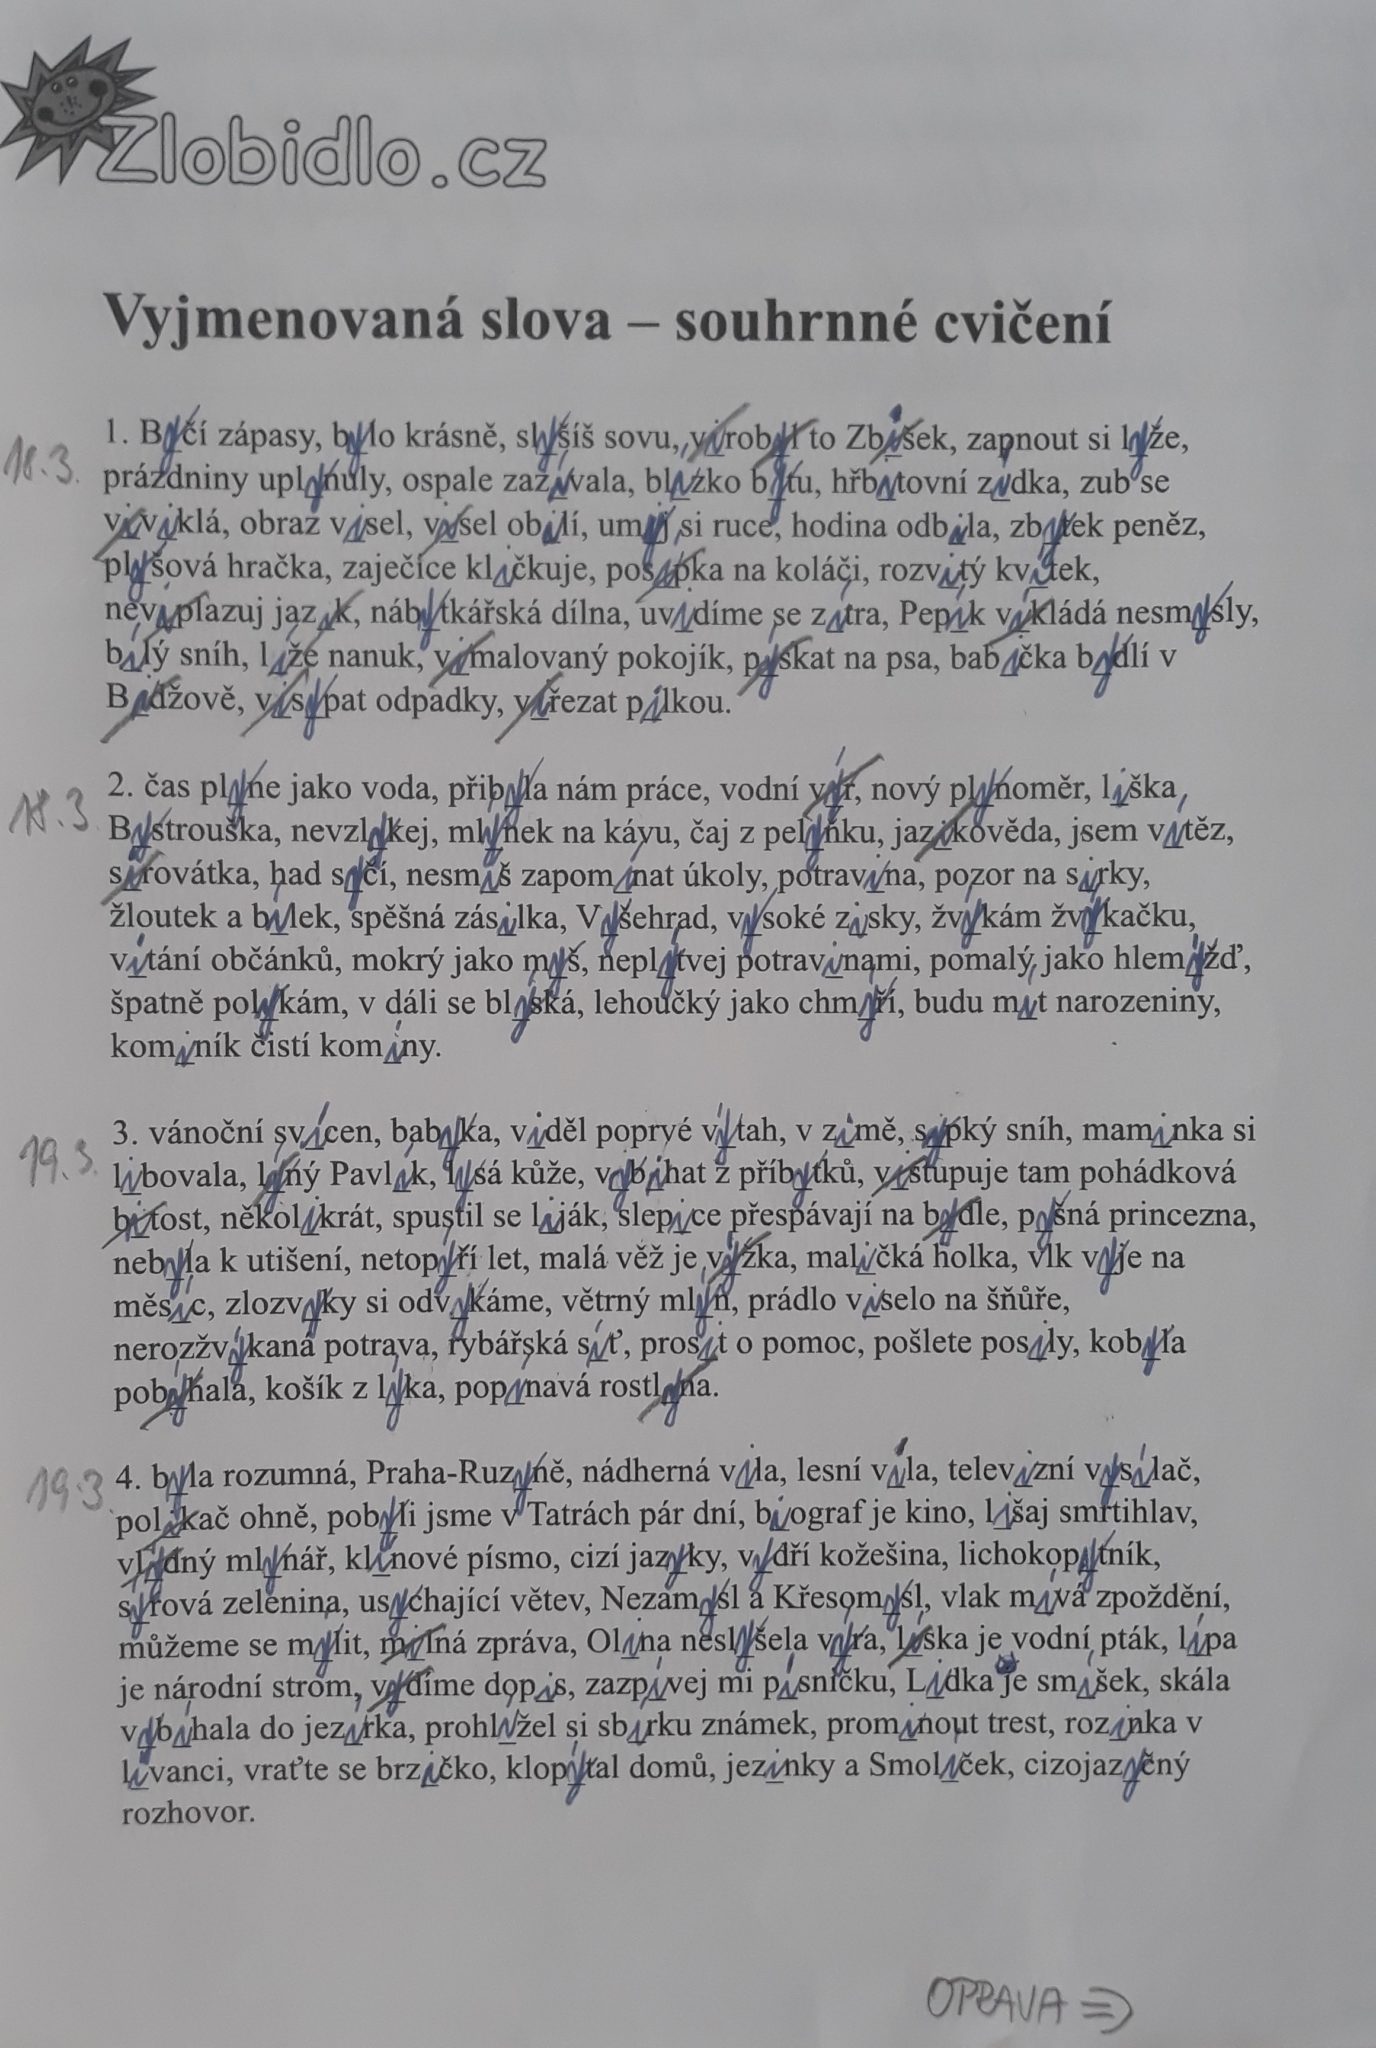 Zlobidlo.cz
Vyjmenovaná slova – souhrnné cvičení
18.3. 1. Býčí zápasy, bylo krásně, slyšíš sovu, virobyl to Zbišek, zapnout si lyže,
prázdniny uplynuly, ospale zazívala, blízko bytu, hřbitovní zídka, zub se
viviklá, obraz visel, visel obilí, umyj si ruce, hodina odbila, zbytek peněz,
plyšová hračka, zaječice kličkuje, posípka na koláči, rozvitý kvítek,
neviplazuj jazik, nábytkářská dílna, uvidíme se zítra, Pepík vikládá nesmysly,
bílý sníh, líže nanuk, vimalovaný pokojík, pýskat na psa, babička bydlí v
Bidžově, visypat odpadky, viřezat pilkou.
18.3. 2. čas plyne jako voda, přibyla nám práce, vodní výr, nový plynoměr, liška
Bystrouška, nevzlykej, mlýnek na kávu, čaj z pelyňku, jazikověda, jsem vítěz,
sirovátka, had syčí, nesmíš zapomínat úkoly, potravina, pozor na sirky,
žloutek a bílek, spěšná zásilka, Vyšehrad, vysoké zisky, žvýkám žvýkačku,
vítání občánků, mokrý jako myš, neplýtvej potravinami, pomalý jako hlemýžď,
špatně polykám, v dáli se blýská, lehoučký jako chmýří, budu mít narozeniny,
kominík čistí komíny.
19.3. 3. vánoční svícen, babyka, viděl poprvé výtah, v zimě, sypký sníh, maminka si
libovala, lýný Pavlík, lysá kůže, vybíhat z příbytků, vistupuje tam pohádková
bitost, několikrát, spustil se liják, slepice přespávají na bydle, pyšná princezna,
nebyla k utišení, netopýří let, malá věž je výžka, maličká holka, vlk vyje na
měsíc, zlozvyky si odvykáme, větrný mlýn, prádlo viselo na šňůře,
nerozžvýkaná potrava, rybářská síť, prosit o pomoc, pošlete posily, kobyla
pobýhala, košík z lýka, popínavá rostlyna.
19.3. 4. byla rozumná, Praha-Ruzyně, nádherná vila, lesní víla, televizní vysílač,
polikač ohně, pobyli jsme v Tatrách pár dní, biograf je kino, lišaj smrtihlav,
vlýdný mlynář, klínové písmo, cizí jazyky, vydří kožešina, lichokopytník,
syrová zelenina, usychající větev, Nezamysl a Křesomysl, vlak mívá zpoždění,
můžeme se mýlit, milná zpráva, Olina neslyšela výra, liska je vodní pták, lípa
je národní strom, vydíme dopis, zazpívej mi písničku, Lidka je smíšek, skála
vybíhala do jezírka, prohlížel si sbírku známek, prominout trest, rozinka v
lívanci, vraťte se brzičko, klopýtal domů, jezinky a Smolíček, cizojazyčný
rozhovor.
OPRAVA ⇒